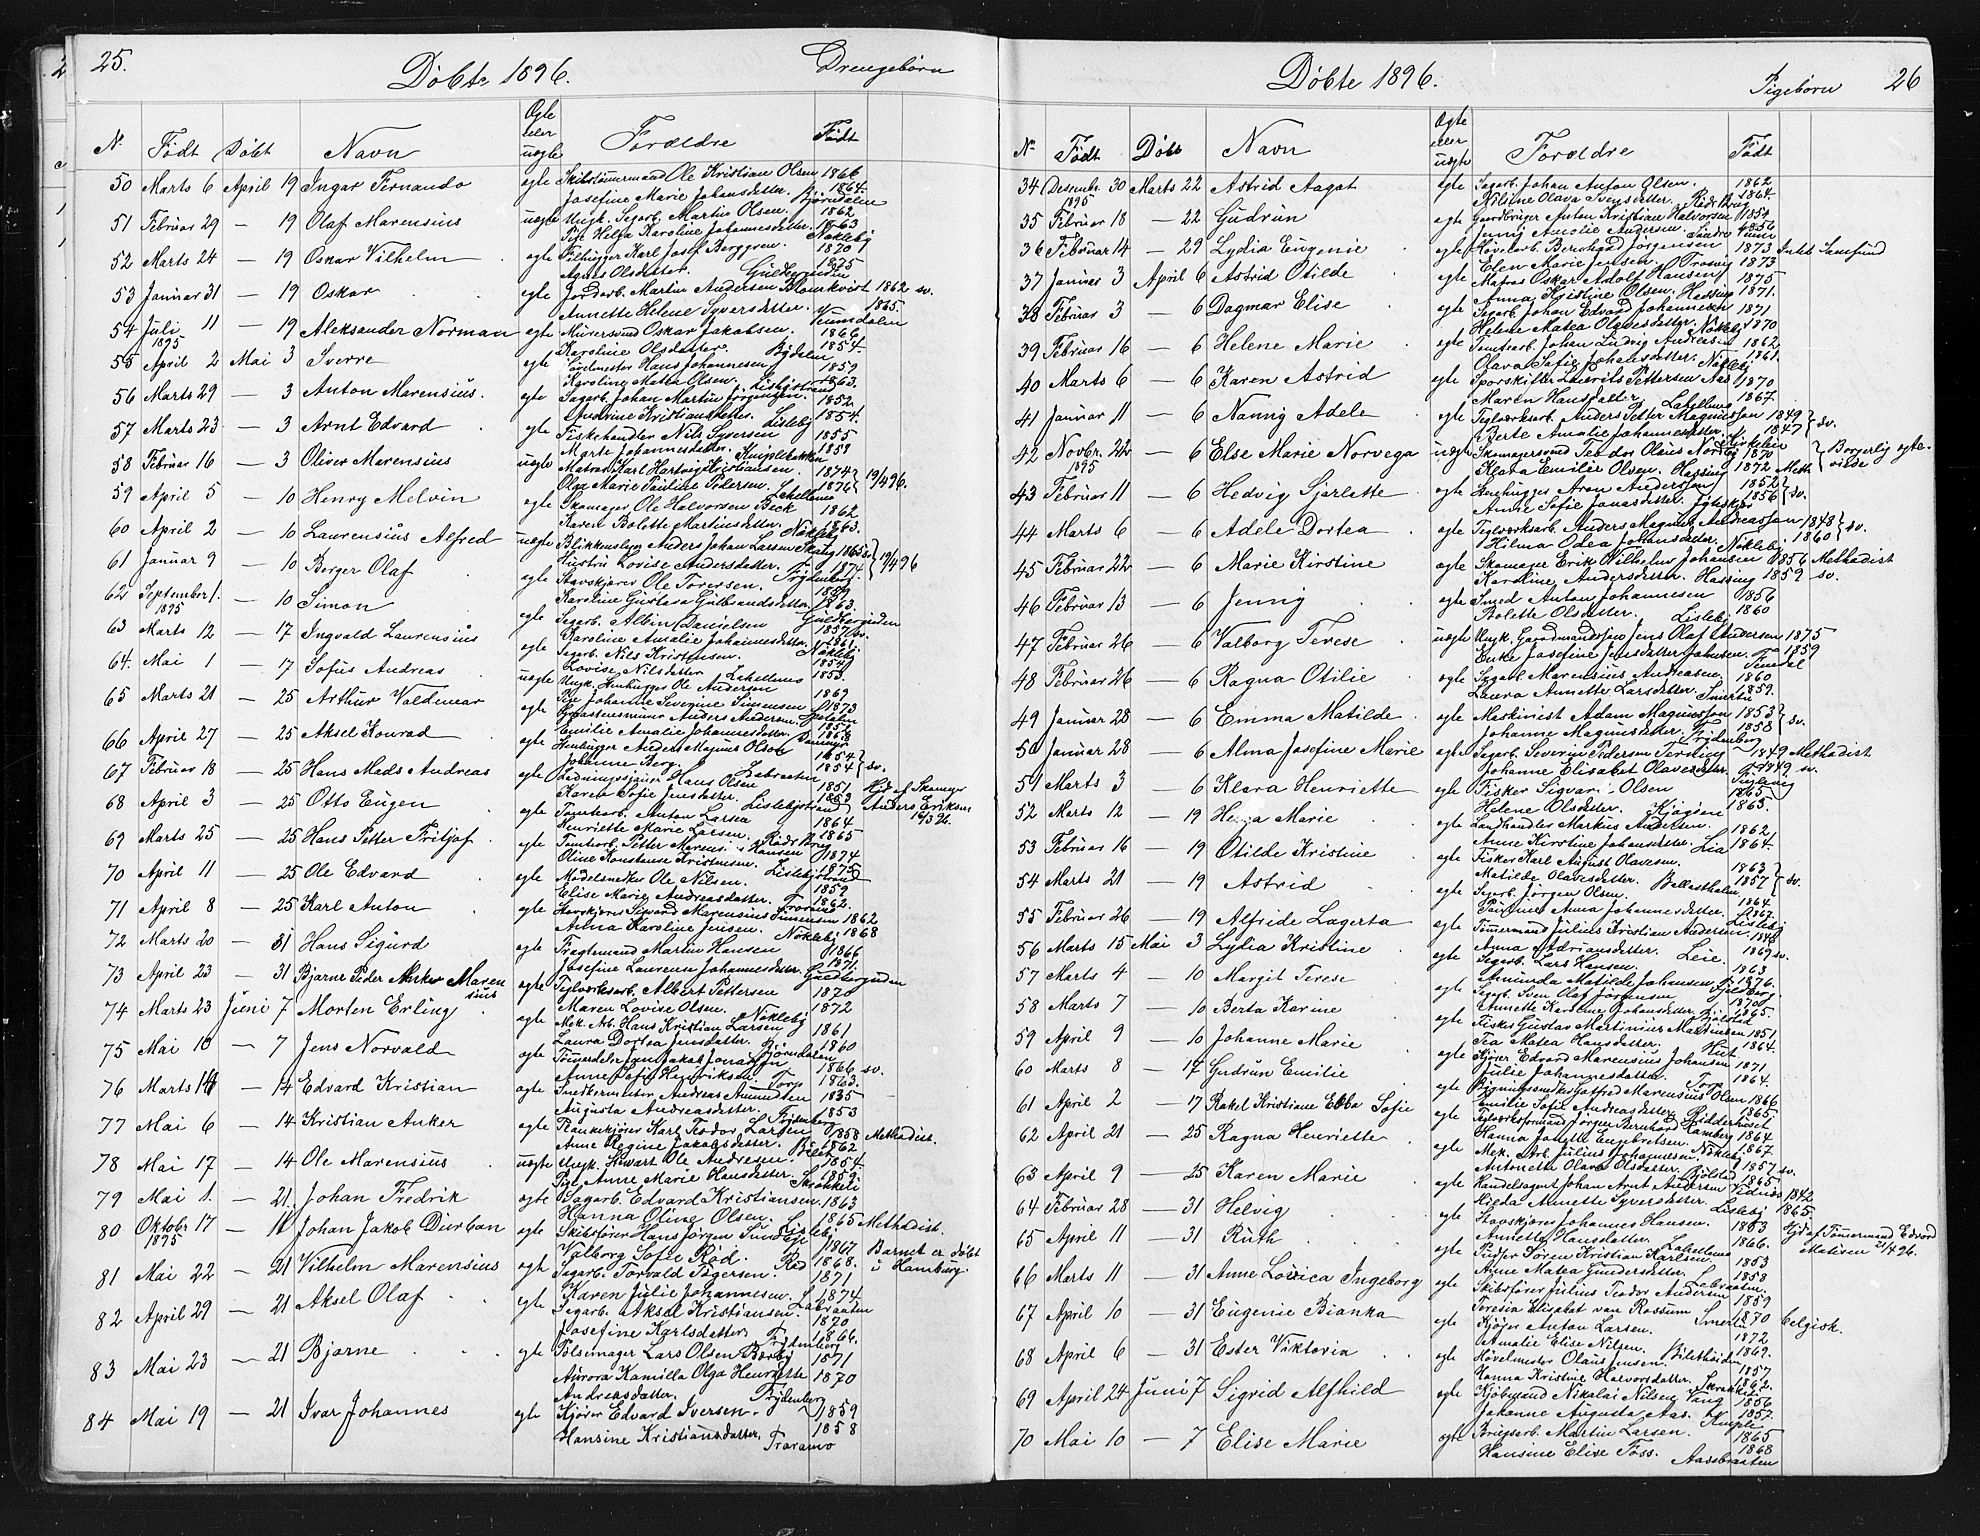 25.
Döbte 1896.
Drengebørn
No Födt Döbt Navn Ægte eller uægte Forældre Födt
50 Marts 6 April 19 Ingar Fernando ægte Skibstömmermand Ole Kristian Olsen 1866
Josefine Marie Johansdatter. Bjørndalen 1864.
51 Februar 29 — 19 Olaf Marensius uægte Ungk. Sagarb. Martin Olsen. 1862
Pige Helga Karoline Johannesdatter. 1863 Nökleby
52 Marts 24 — 19 Oskar Vilhelm ægte Filhugger Karl Josef Berggren. 1870
Agnes Olsdatter. 1875
53 Januar 31 — 19 Oskar ægte Jordarb. Martin Andersen Blomkvist 1862 sv.
Annette Helene Syversdatter. 1865.
54 Juli 11 — 19 Aleksander Norman ægte Murersvend Oskar Jakobsen. 1866
1895
Karoline Olsdatter. 1854.
55 April 2 Mai 3 Sverre ægte Hans Johannesen 1859
Karoline Matea Olsen. 1863.
56 Marts 29 — 3 Anton Marensius. ægte Sagarb. Johan Martin Jørgensen. 1852
Andrine Kristiansdatter. Lisleby 1854.
57 Marts 23 — 3 Arnt Edvard ægte Fiskehandler Nils Syversen 1855
Marte Johannesdatter. 1858
58 Februar 16 — 3 Oliver Marensius uægte Matros Karl Hartvig Kristiansen. 1874
Olga Marie Pauline Pedersen. 1876 19/4 96.
59 April 5 — 10 Henry Melvin ægte Skomager Ole Halvorsen Beck 1862
Karen Bolette Martinsdatter. 1863.
60 April 2 — 10 Laurensius Alfred uægte Blikkenslag. Anders Johan Larsen 1865
Hustru Lovise Andersdatter. 1874
61 Januar 9 — 10 Berger Olaf ægte Stavskjærer Ole Torersen. 1859
Karoline Gustava Gulbrandsdatter. 1863.
62 September 1. — 10 Simon ægte Sagarb. Albin Danielsen 1857 sv.
1895
Karoline Amalie Johannesdatter. 1861.
63 Marts 12 — 17 Ingvald Laurensius ægte Sagarb. Nils Kristensen.
Lovise Nilsdatter 1853.
64. Mai 1 — 17 Sofus Andreas uægte Ungk. Stenhugger Ole Andersen 1869
Pige Johanne Severine Simensen 1873
65 Marts 21 — 25 Arthur Valdemar ægte Anders Andersen
Emilie Amalie Johannesdatter. 1868
66 April 27 — 25 Aksel Konrad ægte Stenhugger Anders Magnus Olson 1854 sv.
Johanne Berg. 1854
67 Februar 18 — 25 Hans Mads Andreas ægte Hans Olsen 1851
Karen Sofie Jensdatter. 1853
68 April 3 — 25 Otto Eugen ægte Anton Larsen 1864
Henriette Marie Larsen. 1865
69 Marts 25 — 25 Hans Petter Fritjof ægte Tomtearb. Petter Marensius Hansen 1874
Oline Konstense Kristensen. 1875
70 April 11 — 25 Ole Edvard ægte Modelsnedker Ole Nilsen. 1859
Elise Marie Andreasdatter. 1862.
71 April 8 — 25 Karl Anton ægte Stavskjærer Sigvard Marensius Simensen 1862
Anna Karoline Jensen. Nökleby 1868
72 Marts 20 — 31 Hans Sigurd ægte Fragtemand Martin Hansen 1866
Josefine Laurense Johannesdatter. 1871.
73 April 23 — 31 Bjarne Peder Anker Marensius ægte Teglværksarb. Albert Pettersen 1870
Maren Lovise Olsen. Nökleby 1872
74 Marts 23 Juni 7 Morten Erling ægte Mek. Arb. Hans Kristian Larsen 1861
Laura Dortea Jensdatter. 1860
75 Mai 10 — 7 Jens Norvald ægte Tömmerdeler Jan Jakob Jonasson 1866 sv.
Anne Sofie Henriksen. Torp 1863.
76 Marts 14 — 14 Edvard Kristian ægte Snedkermester Andreas Amundsen 1835
Augusta Andreasdatter. 1853
77 Mai 6 — 14 Kristian Anker ægte Plankekjörer Karl Teodor Larsen 1858 Methodist.
Anne Regine Jakobsdatter. 1862
78 Mai 17 — 14 Ole Marensius uægte Ungk. Stuart Ole Andresen 1854.
Pige Anne Marie Hansdatter. 1859.
79 Mai 1. — 21. Johan Fredrik ægte Sagarb. Edvard Kristiansen 1863
Hanna Oline Olsen. Lisleby 1865 Methodist.
80 Oktobr 17 — 11 Johan Jakob Durban ægte Skibsförer Hans Jörgen Sundby 1867 Barnet er döbt
1895
Valborg Sofie Röd. Röd 1868. i Hamburg.
81 Mai 22 — 21 Vilhelm Marensius ægte Sagarb. Torvald Pedersen. 1871
Karen Julie Johannesen. 1874.
82 April 29 — 21 Aksel Olaf ægte Sagarb. Aksel Kristiansen. 1870
Josefine Karlsdatter. 1866.
83 Mai 23 — 21 Bjarne ægte Pölsemager Lars Olsen Bærby 1871
Aurora Kamilla Olga Henriette 1870
Andreasdatter. Frydenberg
84 Mai 19 — 21 Ivar Johannes ægte Kjörer Edvard Iversen. 1859
Hansine Kristiansdatter. 1858
Traramo
Döbte 1896.
Pigebørn
26
No Födt Döbt Navn Ægte eller uægte Forældre Födt
34 Desembr. 30 Marts 22 Astrid Aagot ægte Sagarb. Johan Anton Olsen. 1862
1895
Kiline Olava Svensdatter. 1864.
35 Februar 18 — 22 Gudrun ægte Gaardbruger Anton Kristian Halvorsen 1854
Jenny Amalie Andersen. 1856
36 Februar 14 — 29 Lydia Eugenie ægte Hövelarb. Bernhard Jörgensen 1873 Intet Samfund
Elen Marie Jensen. Trosvig 1873
37 Januar 3 April 6 Astrid Otilde ægte Matros Oskar Adolf Hansen 1875
Anna Kristine Olsen. Hassing 1871.
38 Februar 3 — 6 Dagmar Elise ægte Sagarb. Johan Edvard Johannesen 1871
Helene Matea Olavesdatter. Nökleby 1870
39 Februar 16 — 6 Helene Marie ægte Tomtearb. Johan Ludvig Andreasen 1862
Olava Sofie Johansdatter. Nökleby 1861.
40 Marts 6 — 6 Karen Astrid ægte Sporskifter Laurits Pettersen Aas 1870
Maren Hansdatter. 1867.
41 Januar 11 — 6 Nanny Adele ægte Teglværksarb. Anders Petter Magnusson 1849 sv.
Berte Amalie Johannesdatter. 1847
42 Novbr. 22 — 6 Else Marie Norvega uægte Skomagersvend Teodor Olaus Norby 1870 Borgerlig egte-
1895
Klara Emilie Olsen. Hassing 1872 Meth. viede
43 Februar 11 — 6 Hedvig Sjarlotte ægte Stenhugger Aron Andersson 1852 sv.
Anne Sofie Jonasdatter. 1856
44 Marts 6 — 6 Adele Dortea ægte Teglværksarb. Anders Magnus Andreasson 1848 sv.
Hilma Odea Johansdatter. Nökleby. 1860
45 Februar 22 — 6 Marie Kirstine ægte Skomager Erik Vilhelm Johansen 1856 Methodist
Karoline Andersdatter. Hassing 1859 sv.
46 Februar 13 — 6 Jenny ægte Smed Anton Johannesen 1856
Bolette Olsdatter. Lisleby 1860
47 Februar 26 — 6 Valborg Terese uægte Ungk. Gaardmandssön Jens Olaf Andersen 1875
Enke Josefine Jensdatter Johnsen. 1859
48 Februar 26 — 6 Ragna Otilie ægte Sagarb. Marensius Andreasen 1860
Laura Annette Larsdatter. 1859.
49 Januar 28 — 6 Emma Matilde ægte Maskinist Adam Magnusson 1853 sv.
Johanne Magnusdatter. Frydenberg 1858
50 Januar 28 — 6 Alma Josefine Marie ægte Sagarb. Severin Pederson 1849 Methodist
Johanne Elisabet Olavesdatter. 1849 sv.
51 Marts 3 — 6 Klara Henriette ægte Fisker Sigvart Olsen 1865
Helene Olsdatter. 1863.
52 Marts 12 — 19 Helga Marie ægte Landhandler Markus Andersen. 1862
Anne Kirstine Johansdatter. Lia 1864.
53 Februar 16 — 19 Otilde Kristine ægte Fisker Karl August Olavesen. 1863
Matilde Olavesdatter. 1857 sv.
54 Marts 21 — 19 Astrid ægte Sagarb. Jörgen Olsen. 1864.
Pauline Anna Johannesdatter. 1867. Lisleby
55 Februar 26 — 19 Alfride Lagerta ægte Tömmermand Julius Kristian Andersen
Anna Adriansdatter. Leie. 1869 sv.
56 Marts 15 Mai 3 Lydia Kristine ægte Sagarb. Lars Hansen. 1863
Amunda Matilde Johansen. 1876.
57 Marts 4 — 10 Margit Terese ægte Sagarb. Sven Olaf Jörgensen 1870
Annette Karoline Johansdatter. 1865.
58 Marts 7 — 10 Berta Karine ægte Fisker Gustav Martinius Martinsen 1851
Tea Matea Hansdatter. 1864.
59 April 9 — 10 Johanne Marie ægte Kjörer Edvard Marensius Johansen 1871
Julie Johannesdatter. Torp 1864.
60 Marts 8 — 17 Gudrun Emilie ægte Bygningssnedker Gotfred Marensius Olsen 1866
Emilie Sofie Andreasdatter. 1865.
61 April 2 — 17 Rakel Kristiane Ebba Sofie ægte Teglværksformand Jörgen Bernhard Ramberg 1864
Hanna Josette Engebretsen. 1867.
62 April 21 — 25 Ragna Henriette ægte Mek. Arb. Julius Johannesen. 1857 sv.
Antonette Olava Olsdatter. 1865
63 April 9 — 25 Karen Marie ægte Handelsagent Johan Arnt Andersen 1842
Hilda Annette Syversdatter. Lisleby 1865.
64 Februar 28 — 31 Helvig ægte Stavskjører Johannes Hansen. 1853 Hjd. af Tömmermand Edvard
Annette Hansdatter. 1866. 21/4 96.
65 April 11 — 31 Ruth ægte Pudser Sören Kristian Karlsen 1853
Anne Matea Gundersdatter. 1858
66 Marts 11 — 31 Anne Lovica Ingeborg ægte Skibsförer Julius Teodor Andersen 1859
Teresia Elisabet van Rossum 1870 belgisk.
67 April 10 — 31 Eugenie Bianka ægte Kjører Anton Larsen. 1872
Amalie Elise Nilsen. 1869.
68 April 6 — 31 Ester Viktoria ægte Hövelmester Olaus Jensen. 1857
Hanna Kristine Halvorsdatter. 1862.
69 April 24 Juni 7 Sigrid Alfhild ægte Kjöbmand Nikolai Nilsen Vang 1856
Johanne Augusta Aas. 1857.
70 Mai 10 — 7 Elise Marie ægte Brugsarb. Martin Larsen. 1865
Hansine Elise Foss. 1868
Aasebraaten